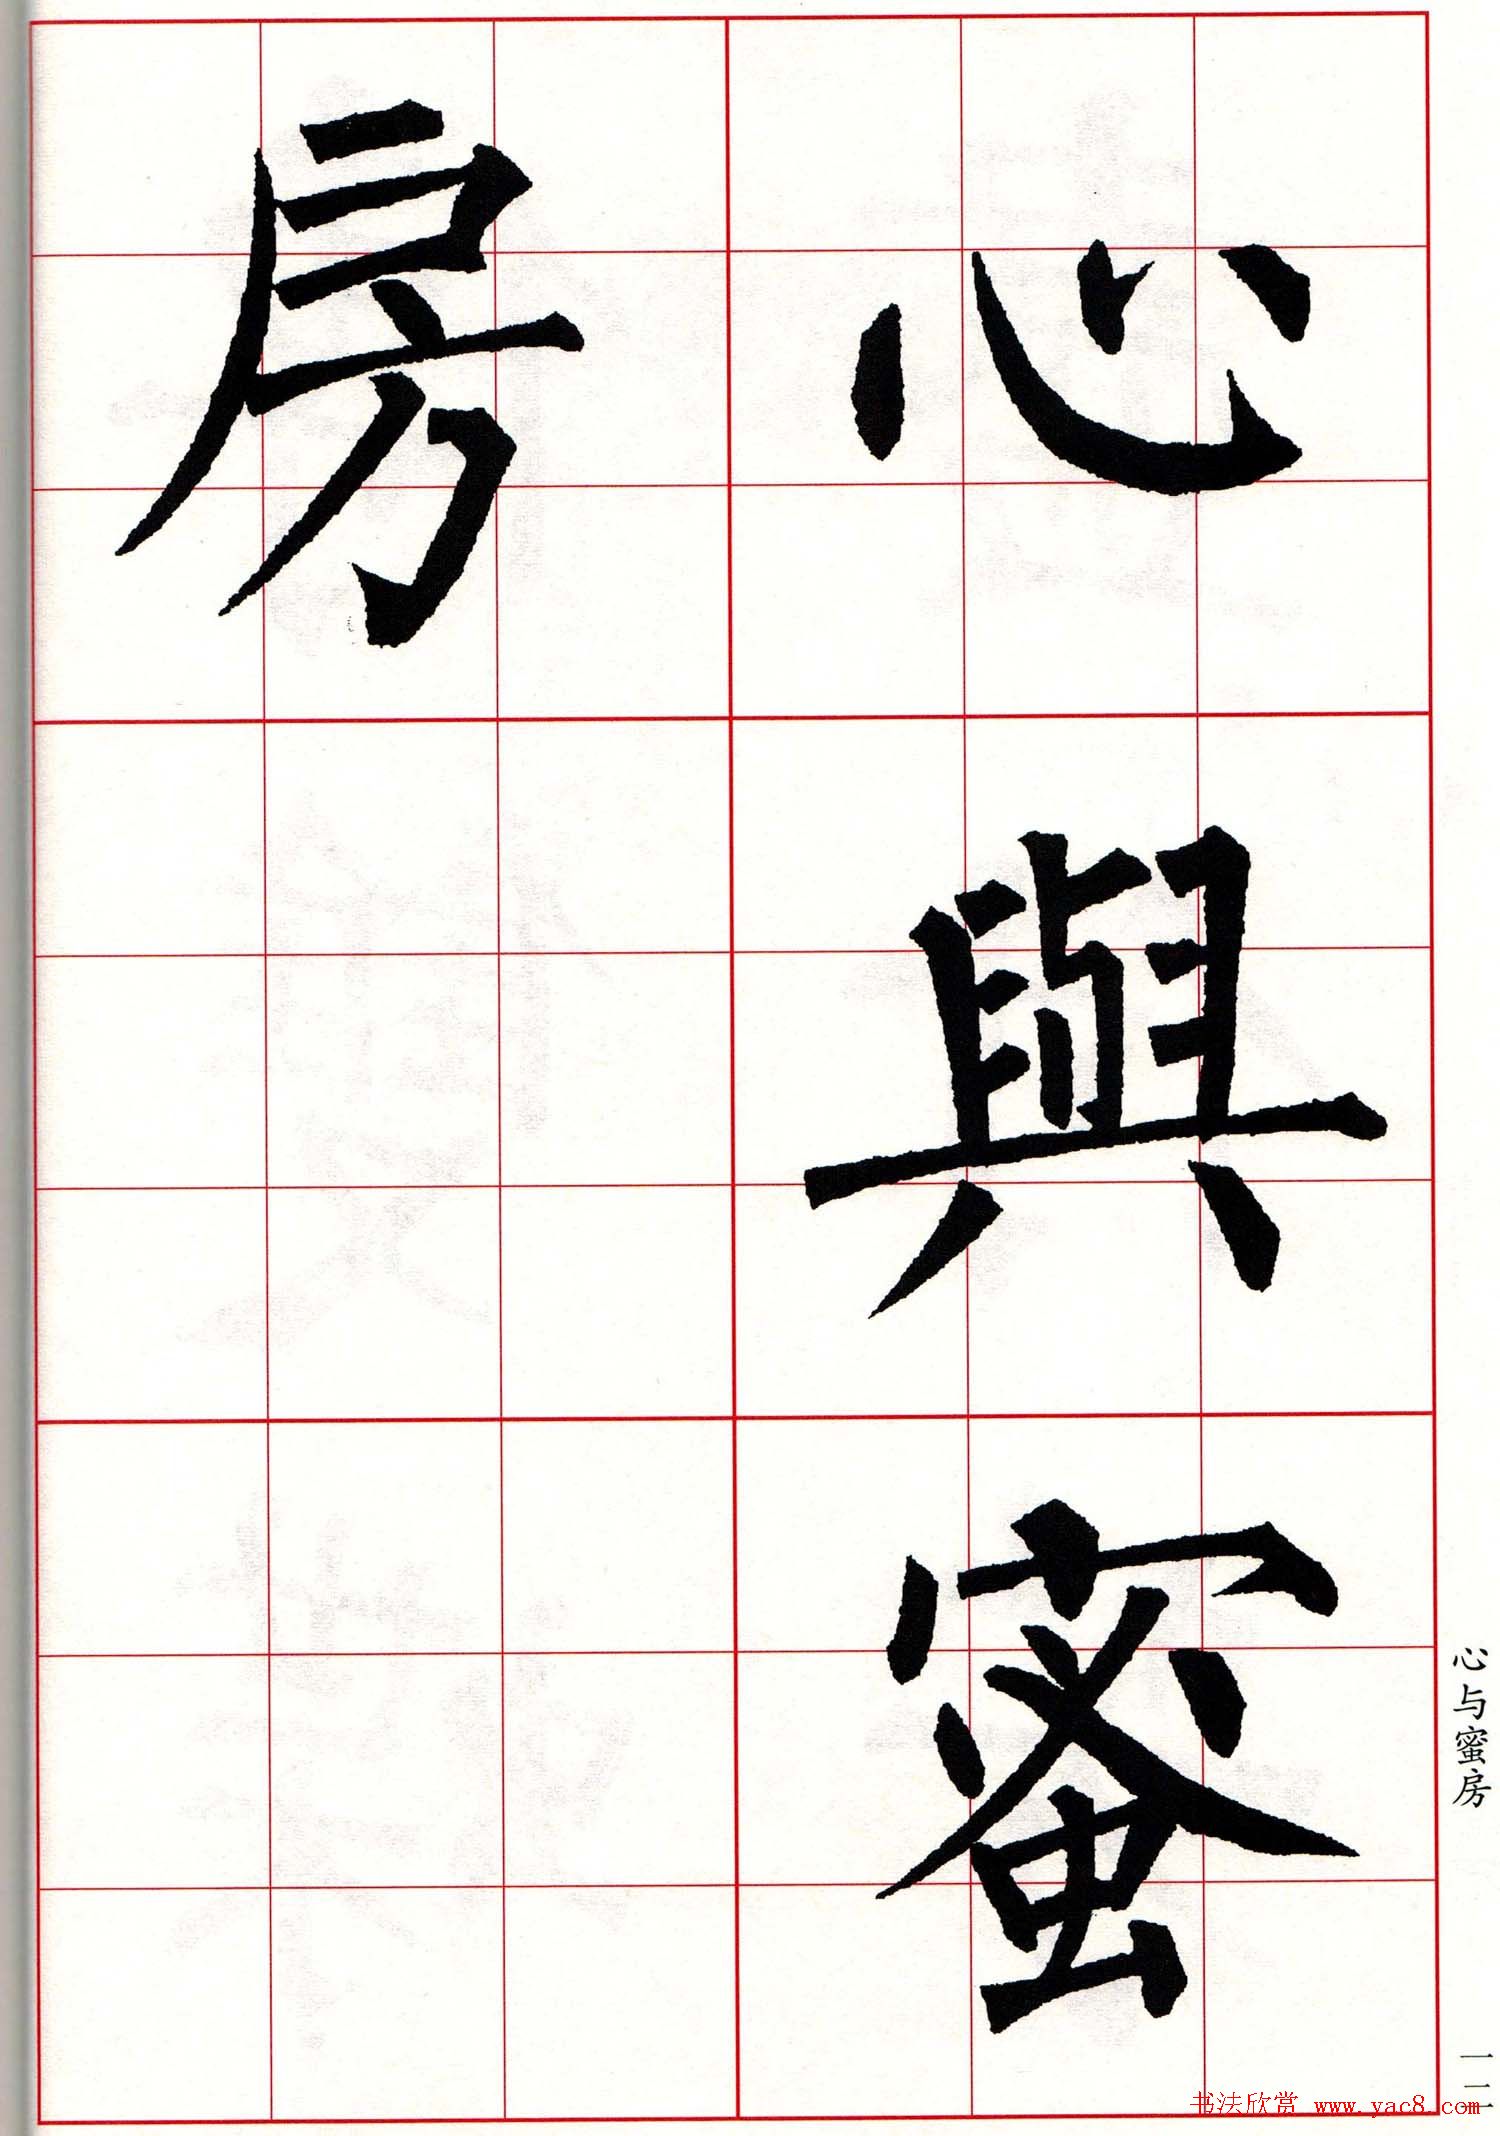 心與蜜
房
心与蜜房
一一二
书法欣赏 www.yac8.com